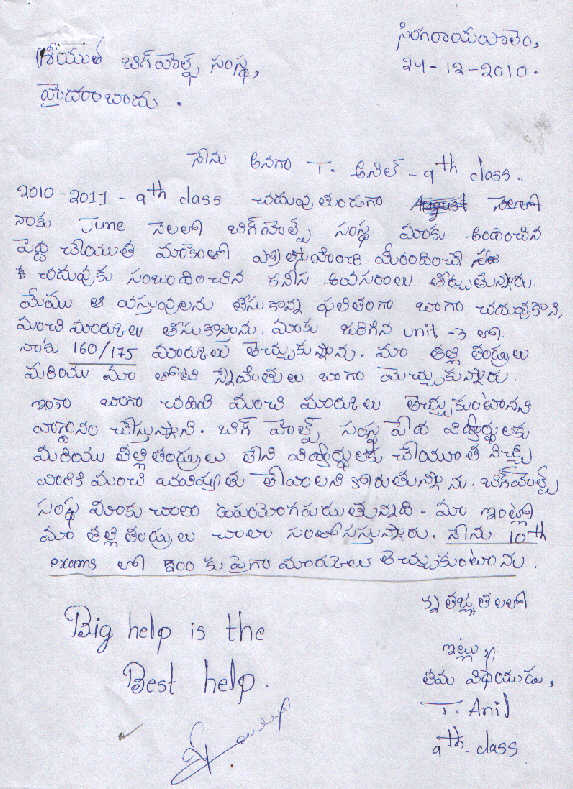 సింగరాయపాలెం,
24-12-2010.
శ్రీయుత బిగ్‌హెల్ప్ సంస్థ,
హైదరాబాదు.
నేను అనగా T. అనిల్ - 9th class.
2010-2011 - 9th class చదువుతుండగా
నాకు June నెలలో బిగ్‌హెల్ప్ సంస్థ మాకు అందించిన
చదువుకు సంబంధించిన కనీస అవసరాలు తీర్చుతున్నారు.
మేము ఆ వస్తువులను తీసుకొన్న ఫలితంగా బాగా చదువుకొని,
మంచి మార్కులు తీసుకొన్నాను. మాకు జరిగిన unit-3 లో
నాకు 160/175 మార్కులు తెచ్చుకున్నాను. మా తల్లి తండ్రులు
మరియు మా తోటి స్నేహితులు బాగా మెచ్చుకున్నారు.
ఇంకా బాగా చదివి మంచి మార్కులు తెచ్చుకుంటానని
వాగ్దానం చేస్తున్నాను. బిగ్ హెల్ప్ సంస్థ పేద విద్యార్థులకు
మరియు తల్లితండ్రులు లేని విద్యార్థులకు చేయూత నిచ్చి
వారికి మంచి భవిష్యత్తు ఇవ్వాలని కోరుతున్నాను. బిగ్‌హెల్ప్
సంస్థ మాకు చాలా ఉపయోగపడుతున్నది. మా ఇంట్లో
మా తల్లి తండ్రులు చాలా సంతోషిస్తున్నారు. నేను 10th
exams లో 500 కు పైగా మార్కులు తెచ్చుకుంటాను.
కృతజ్ఞతలతో
ఇట్లు,
తమ విధేయుడు,
T. Anil
9th class
Big help is the
Best help.